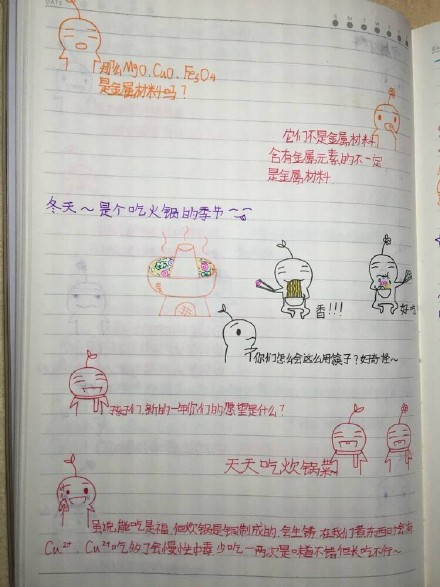 「那么MgO、CuO、Fe₃O₄
是金属材料吗？
它们不是金属材料
含有金属元素的不一定
是金属材料
冬天～是个吃火锅的季节～
香!!!
好吃
「你们怎么会这么用筷子？好奇怪～
孩子们，新的一年你们的愿望是什么？
天天吃炊锅菜
虽说，能吃是福，但炊锅是铜制成的，会生锈，在我们煮东西时会有
Cu²⁺，Cu²⁺吃多了会慢性中毒，少吃一两次是味道不错但长吃不行～